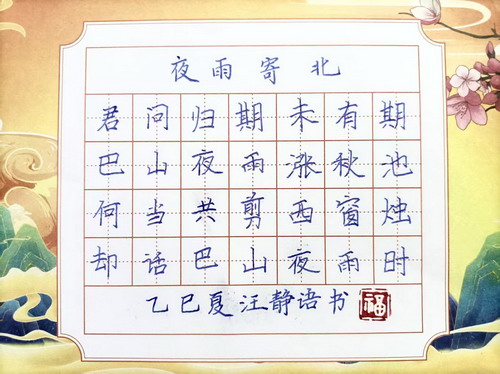 夜雨寄北
君问归期未有期
巴山夜雨涨秋池
何当共剪西窗烛
却话巴山夜雨时
乙巳夏汪静语书 福